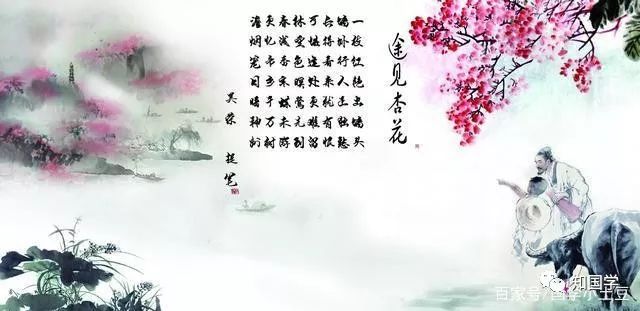 途见杏花
一枝红艳出墙头
墙外行人正独愁
长得看来犹有恨
可堪逢处更难留
林空色暝莺先到
春浅香寒蝶未游
更忆帝乡千万树
澹烟笼日暗神州
吴荣 提笔
知国学
百家号/国学小土豆